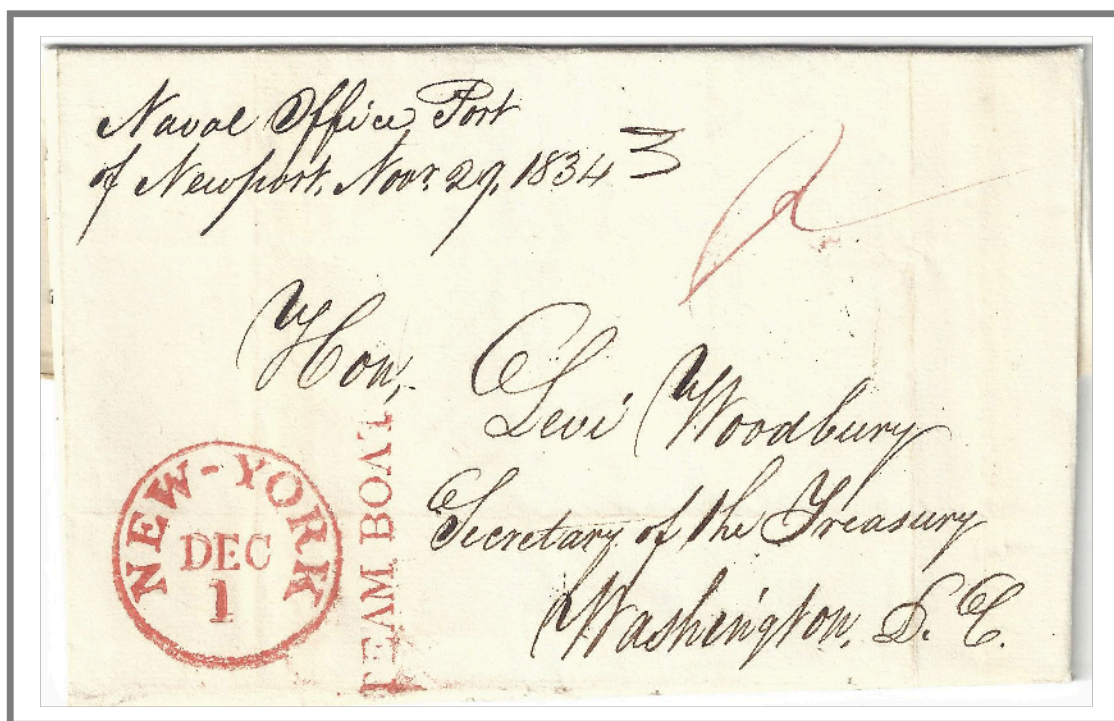 Naval Office, Port
of Newport, Novr. 29, 1834
Hon,
Levi Woodbury
Secretary of the Treasury
Washington, D. C.
NEW-YORK
DEC
1
TEAM BOAT